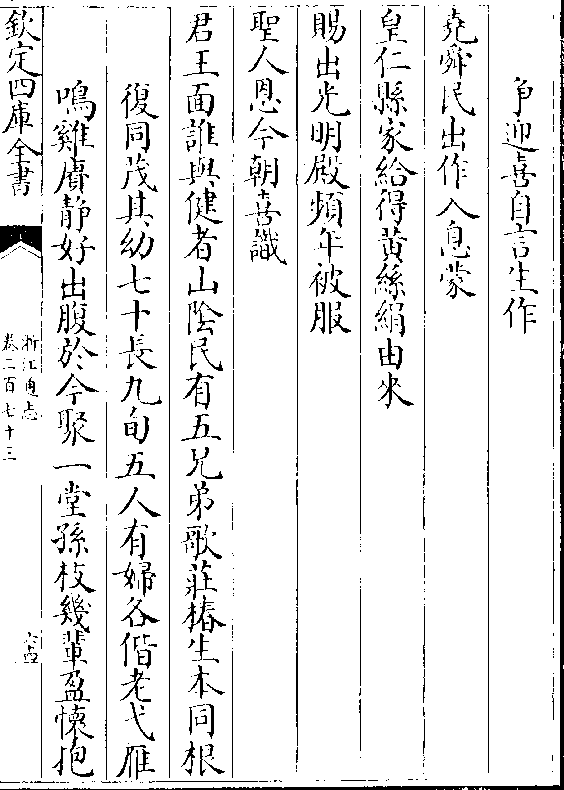 争迎喜自言生作
堯舜民出作入息蒙
皇仁縣家給得黄絲絹由來
賜出光明殿頻年被服
聖人恩今朝喜識
君王面誰與健者山陰民有五兄弟歌莊椿生本同根
復同茂其幼七十長九旬五人有婦各偕老弋雁
鳴雞膺静好出腹於今聚一堂孫枝幾輩盈懷抱
欽定四庫全書
浙江通志
卷二百七十三
六四